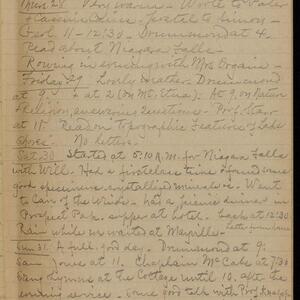 Thurs. 28 Very warm - Wrote to Pater
postal to Simon -
Geol. 11 - 12/30 - Drummond at 4 -
Read about Niagara Falls -
Rowing in evening with Mrs
Friday 29 Lovely weather. Drummond
at 9 & at 2 (on Mt. Etna). At 9, on Natural
Religion, answering questions - Prof. Starr
at 11. Reason topographic Features of Lake
Shore. No letters -
Sat. 30 Started at 5:10 A.M. for Niagara Falls
with Will. Had a firstclass time & found some
good specimens crystallized minerals. Went
to Cave of the Winds - had a picnic dinner in
Prospect Park. supper at hotel. back at 12:30.
Rain while we waited at Mayville - Letter from
Sun 31. A full, good day - Drummond at 9;
Sam Jones at 11. Chaplain McCabe at 7/30
Sang hymns at the Cottage until 10. after the
evening service. Some good talk with Prof.